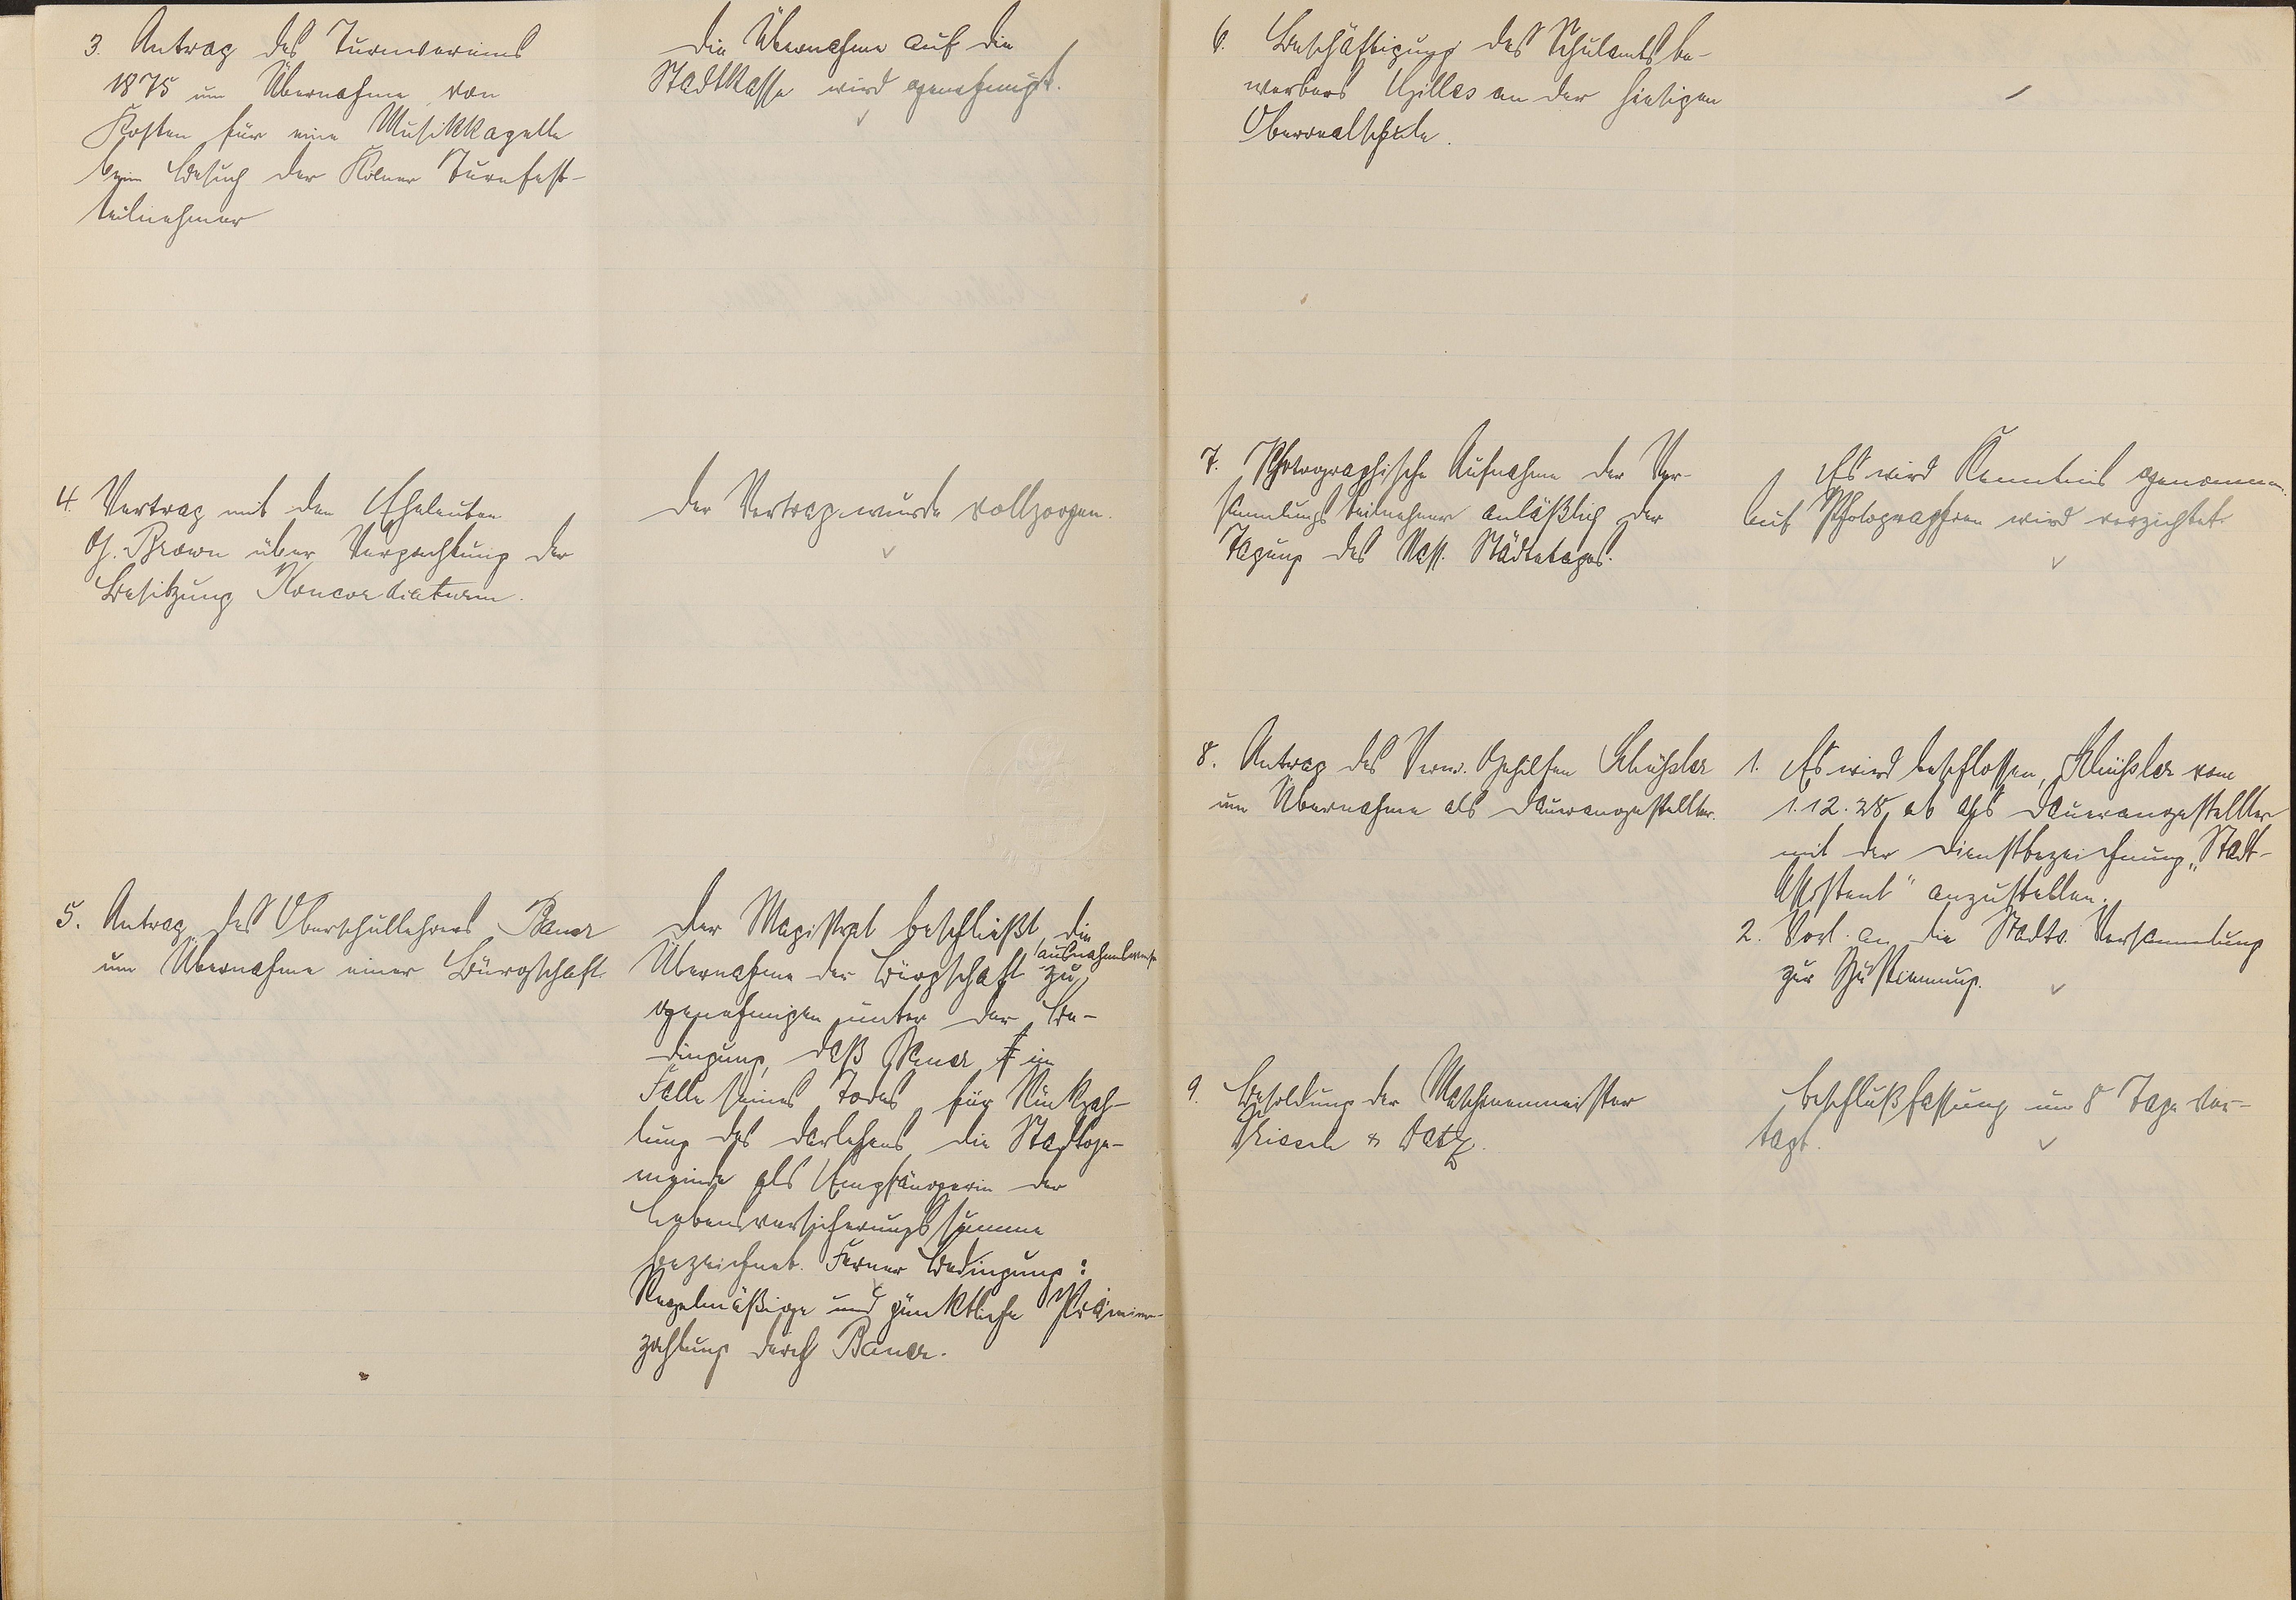 3. Antrag des Turnvereins
1875 um Übernahme von
Kosten für eine Musikkapelle
beim Besuch der Kölner Turnfest-
teilnehmer
Die Übernahme auf die
Stadtkasse wird genehmigt.
4. Vertrag mit den Eheleuten
G. Braun über Verpachtung der
Besitzung Konkordiaturm.
Der Vertrag wurde vollzogen.
5. Antrag des Oberschullehrers Bauer
um Übernahme einer Bürgschaft.
Der Magistrat beschließt, die
Übernahme der Bürgschaft ausnahmsweise zu
genehmigen unter der Be-
dingung, daß Bauer im
Falle seines Todes für Rückzah-
lung des Darlehens die Stadtge-
meinde als Empfängerin der
Lebensversicherungssumme
bezeichnet. Ferner Bedingung:
Regelmäßige und pünktliche Prämien-
zahlung durch Bauer.
6. Beschäftigung des Schulamtsbe-
werbers Gilles an der hiesigen
Oberrealschule.
7. Photographische Aufnahme der Ver-
sammlungsteilnehmer anläßlich der
Tagung des Nass. Städtetages.
Es wird Kenntnis genommen.
Auf Photographien wird verzichtet.
8. Antrag des Verw. Gehilfen Schüssler
um Übernahme als Dauerangestellter.
1. Es wird beschlossen, Schüssler vom
1.12.28 ab als Dauerangestellter
mit der Dienstbezeichnung „Stadt-
assistent" anzustellen.
2. Vorl. an die Stadtv. Versammlung
zur Zustimmung.
9. Besoldung der Maschinenmeister
& Datz.
Beschlußfassung um 8 Tage ver-
tagt.